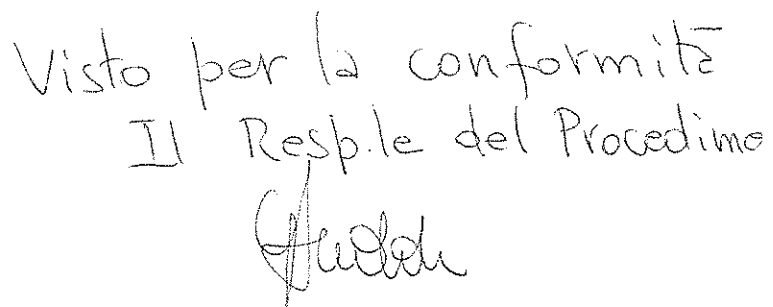 Visto per la conformità
Il Resp.le del Procedime